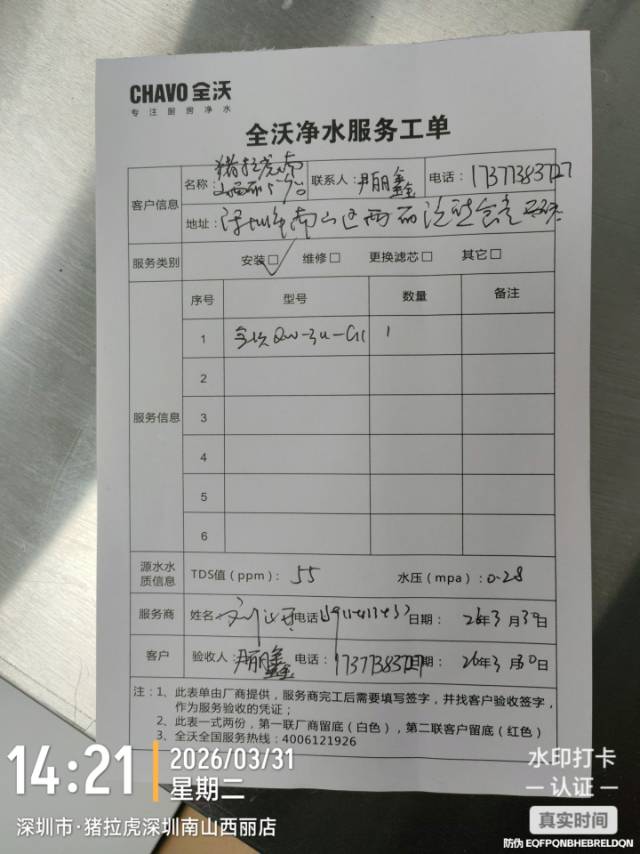 CHAVO 全沃
专注厨房净水
全沃净水服务工单
客户信息
名称：猪拉虎
联系人：尹丽鑫 电话：17371383727
地址：深圳市南山区西丽
服务类别 安装□√ 维修□ 更换滤芯□ 其它□
服务信息
序号 型号 数量 备注
1 全沃QW-3U-G11 1
2
3
4
5
6
源水水质信息 TDS值（ppm）：55 水压（mpa）：0.28
服务商 姓名 电话 日期：26年3月30日
客户 验收人：尹丽鑫 电话：17371383727 日期：26年3月30日
注：1、此表单由厂商提供，服务商完工后需要填写签字，并找客户验收签字，
作为服务验收的凭证；
2、此表一式两份，第一联厂商留底（白色），第二联客户留底（红色）
3、全沃全国服务热线：4006121926
14:21
2026/03/31
星期二
深圳市·猪拉虎深圳南山西丽店
水印打卡
认证
真实时间
防伪 EQFPQNBHEBRELDQN